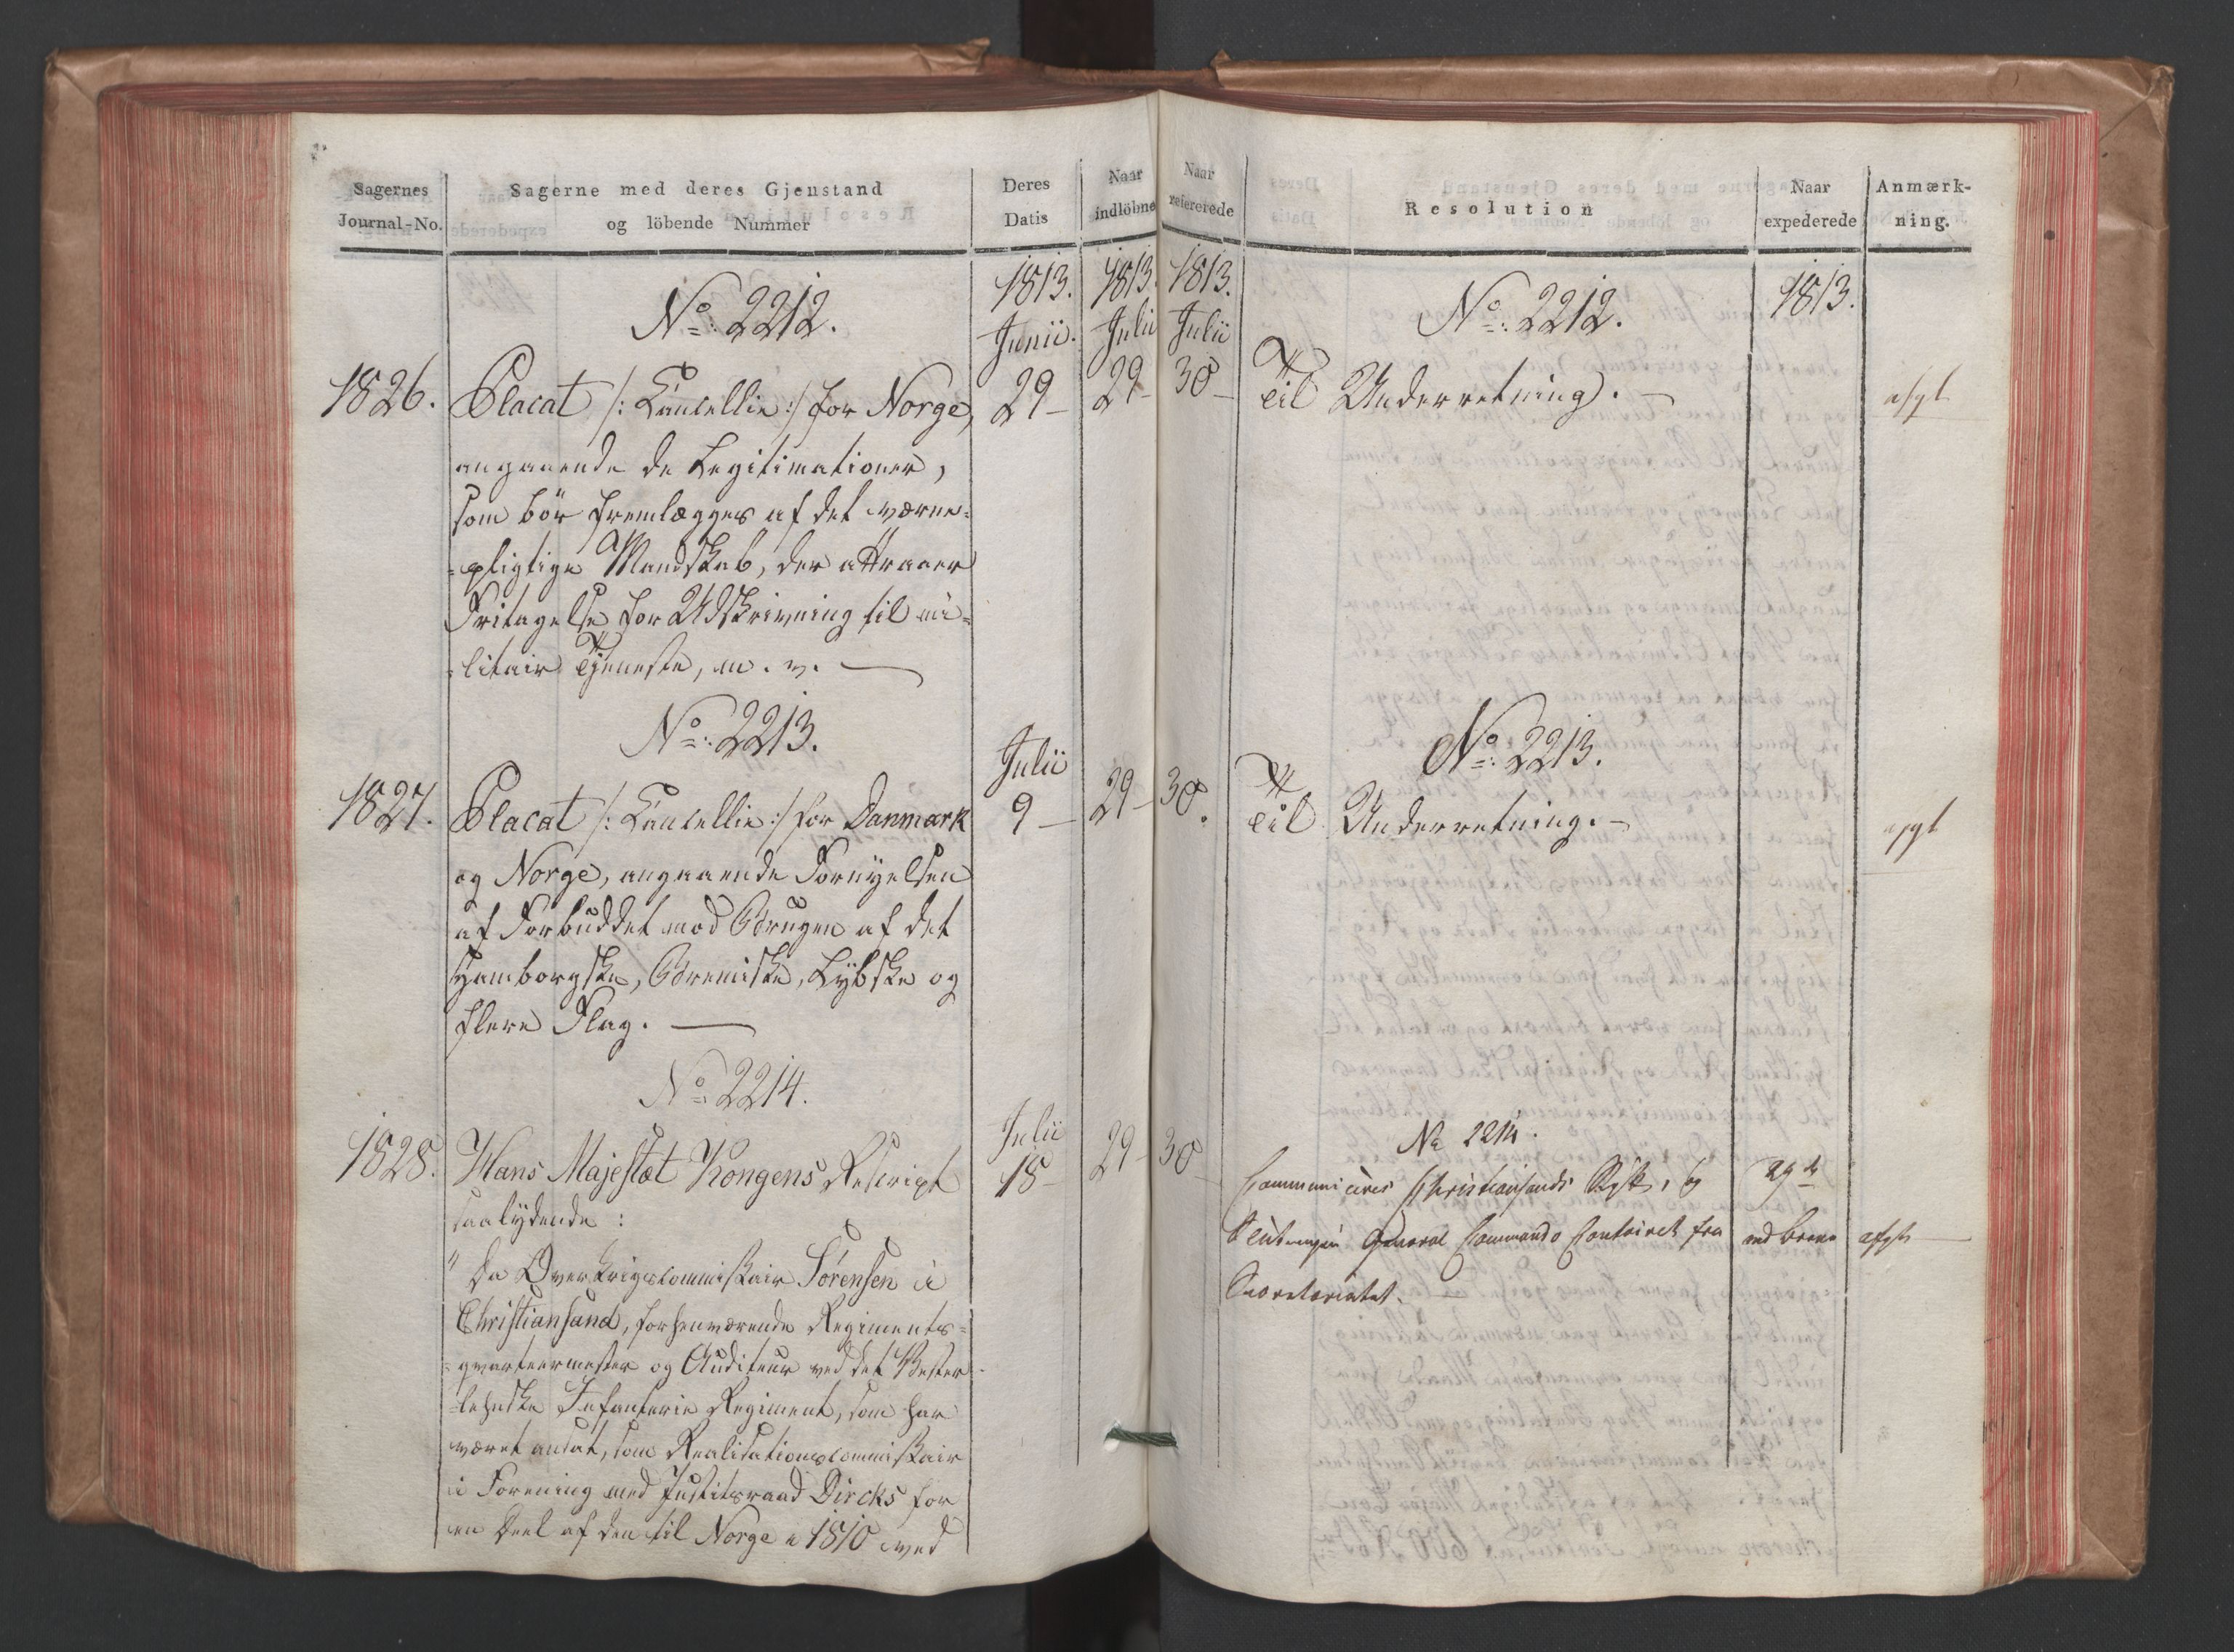 Sagernes
Journal-No.
Sagerne med deres Gjenstand
og löbende Nummer
Deres
Datis
Naar
indlöbne
Naar
refererede
Resolution
Naar
expederede
Anmærk-
ning.
1813.
1813.
1813.
1813.
No: 2212.
Junii.
Julii
Julii
No: 2212.
1826.
Placat /: Cancellie :/ for Norge,
29 –
29 –
30 –
Til Underretning. –
afgl
angaaende de Legitimationer,
som bör fremlægges af det værne=
=pligtige Mandskab, der attraaer
Fritagelse for Udskrivning til mi=
=litair Tjeneste, m. v. —
No: 2213.
Julii
No: 2213.
1827.
Placat /: Cancellie :/ for Danmark
9 –
29 –
30.
Til Underretning. –
afgl
og Norge, angaaende Fornyelsen
af Forbuddet mod Brugen af det
Hamborgske, Bremiske, Lybske og
flere Flag. —
No: 2214.
Julii
No 2214.
1828.
Hans Majestæt Kongens Rescript
18 –
29 –
30 –
Communiceres Christiansands
29de
saalydende:
General Commando Contoiret fra
afgl —
Secretariatet. –
" Da Overkrigscommissair Sörensen i
Christiansand, forhenværende Regiments=
=qvarteermester og Auditeur ved det Vester=
=lehnske Infanterie Regiment, som har
været ansat, som Realisationscommissair
i Forening med Justitsraad Dircks for
en Deel af den til Norge i 1810 ved